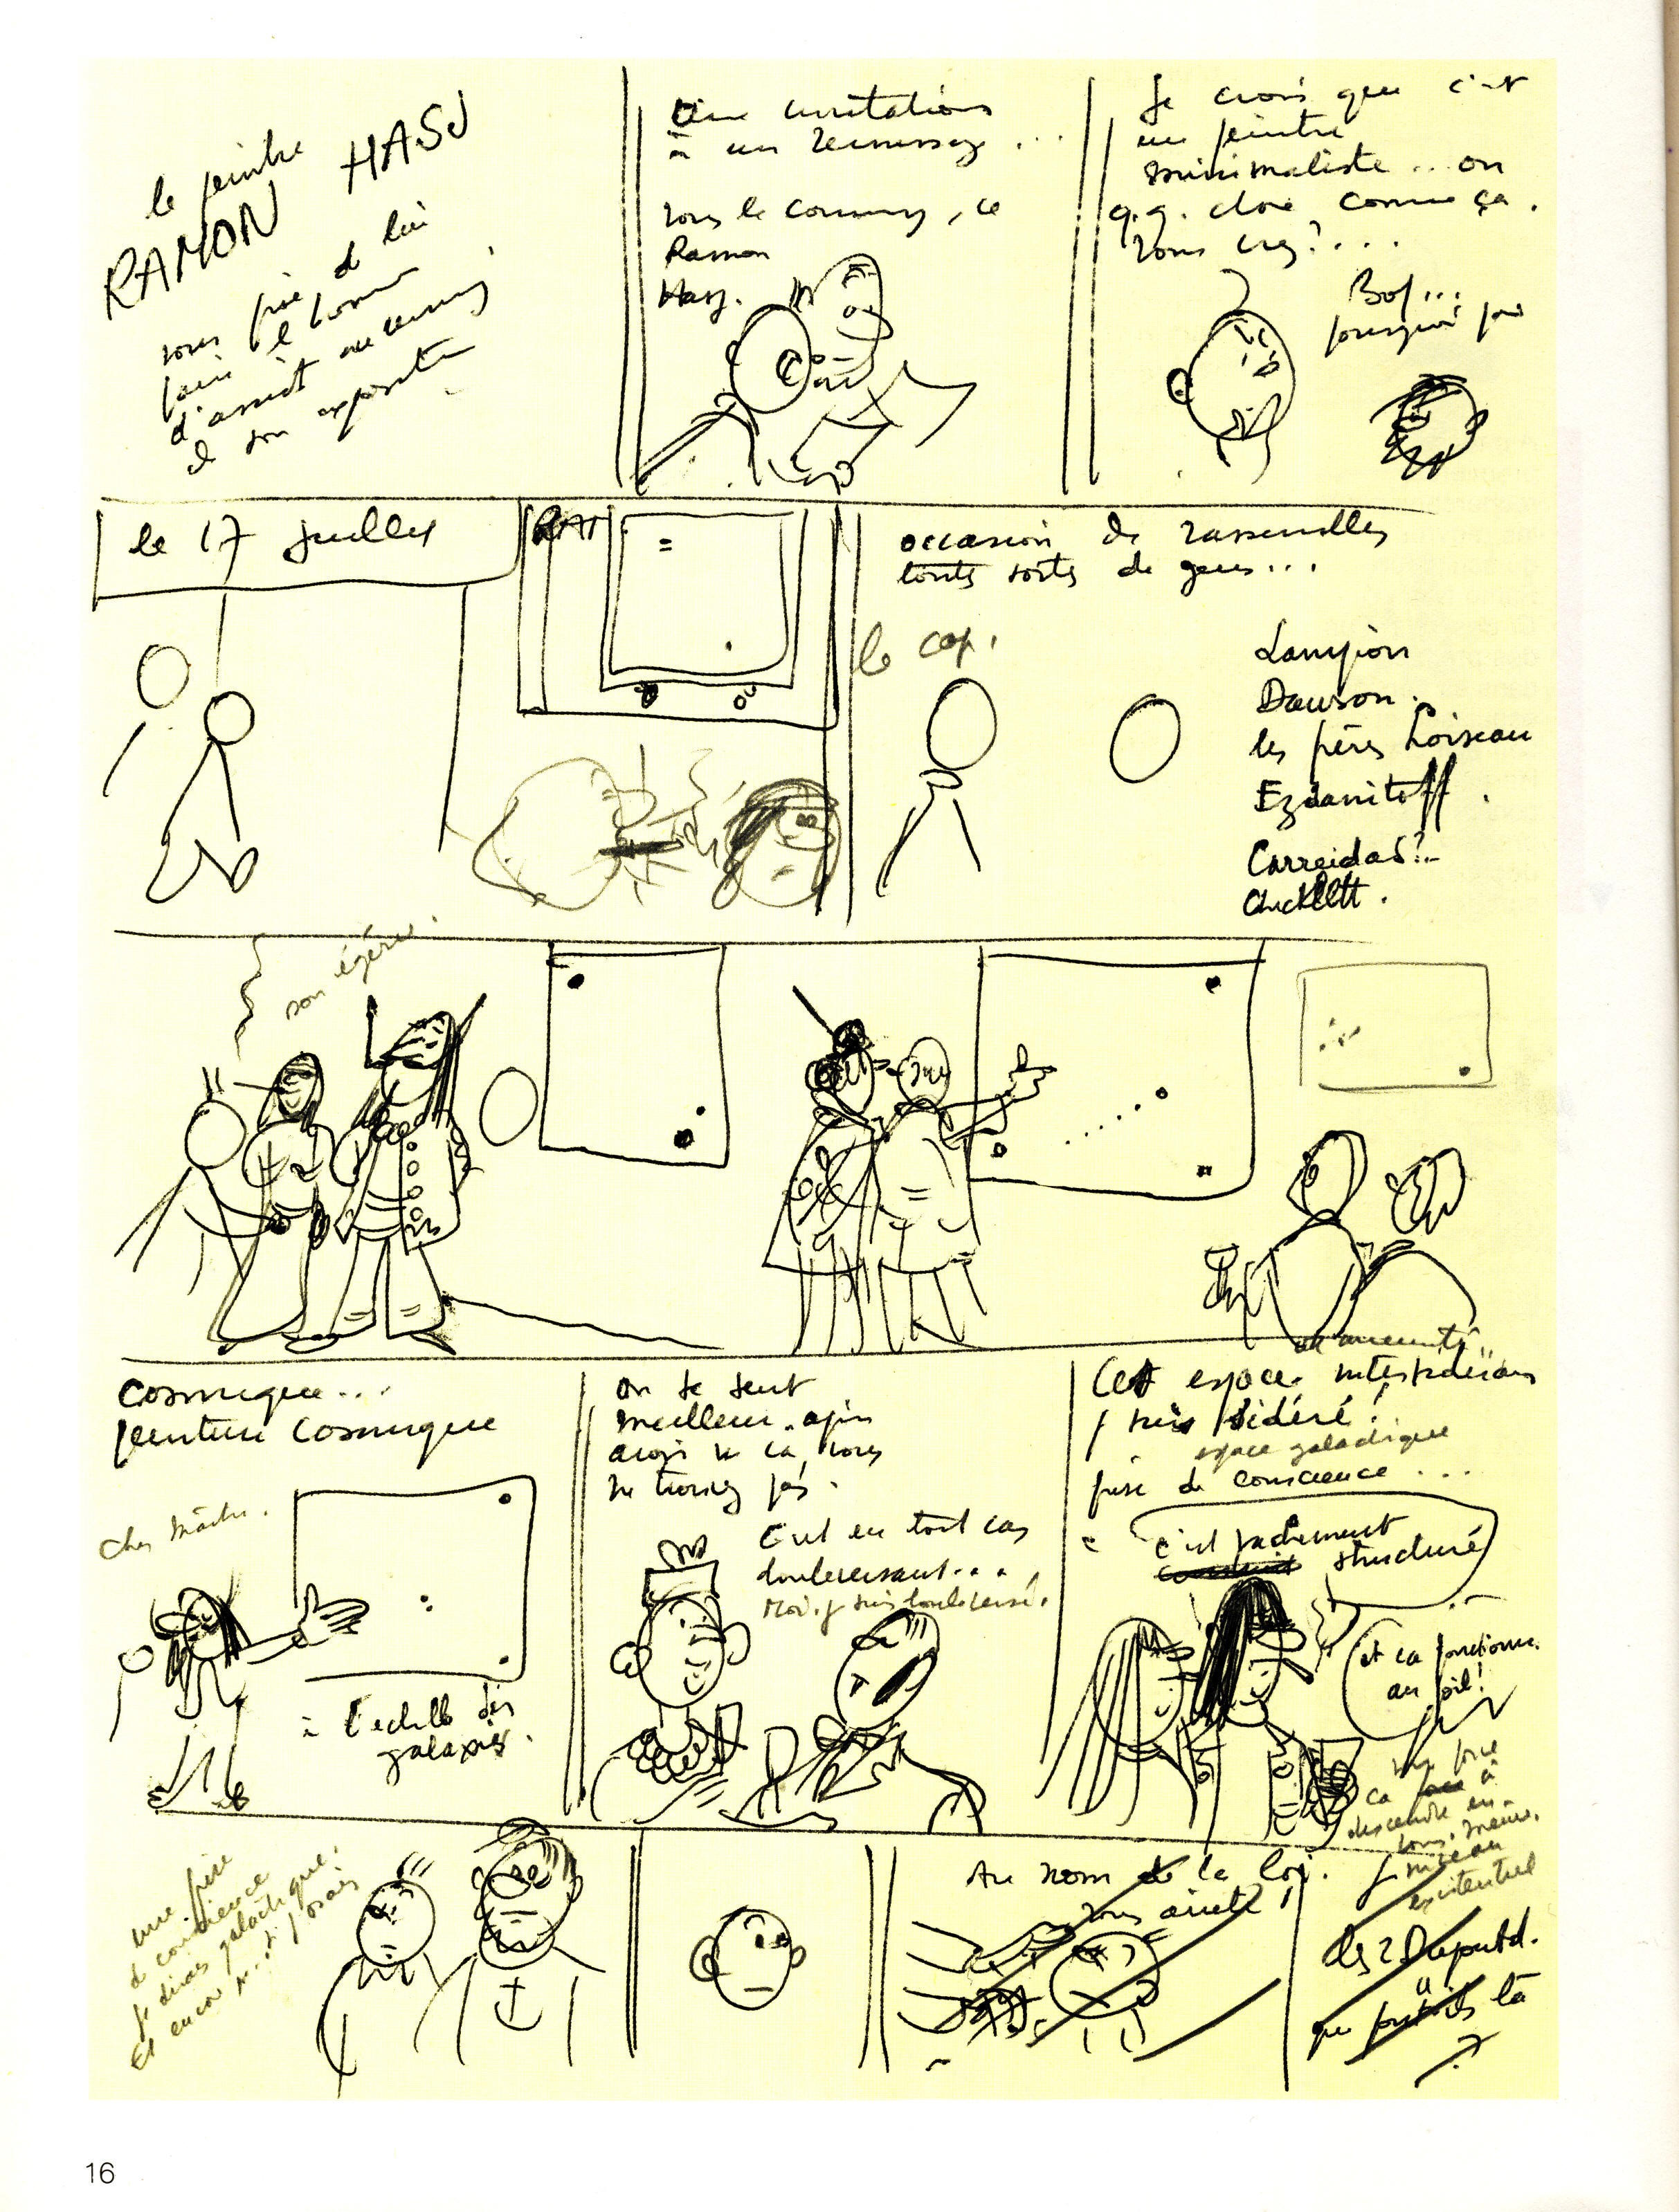 le peintre
RAMON HASJ
vous prie de lui
faire l'honneur
d'assist au verniss
d son exposition
Une invitation
à un vernissag...
vous le connaiss, ce
Ramon
Hasj.
Je crois que c'est
un peintre
minimaliste... ou
q.q. chose comme ça.
vous irez?...
Bof...
pourquoi pas
le 17 juillet
RAM
occasion de rassembler
toutes sortes de gens...
le cap.
Lampion
Dawson.
les frères Loiseau
Ezdanitoff.
Carreidas?..
Chicklitt.
son égérie.
Cosmique...
peinture cosmique
Cher Maître.
à l'échelle des
galaxies.
on se sent
meilleur après
avoir vu ça, vous
ne trouvez pas.
C'est en tout cas
bouleversant...
Moi, j suis bouleversé.
Cet espace intersidéral
j suis sidéré!
espace galactique
prise de conscience...
c'est vachement
structuré
et ça fonctionne
au poil!
ça vous force à
descendre en
vous-même.
niveau
existentiel
une prise
d conscience
je dirais galactique.
Et encore si j'osais
Au nom de la loi. J
vous arrête!
les 2 Dupontd.
que font-ils là
?
16